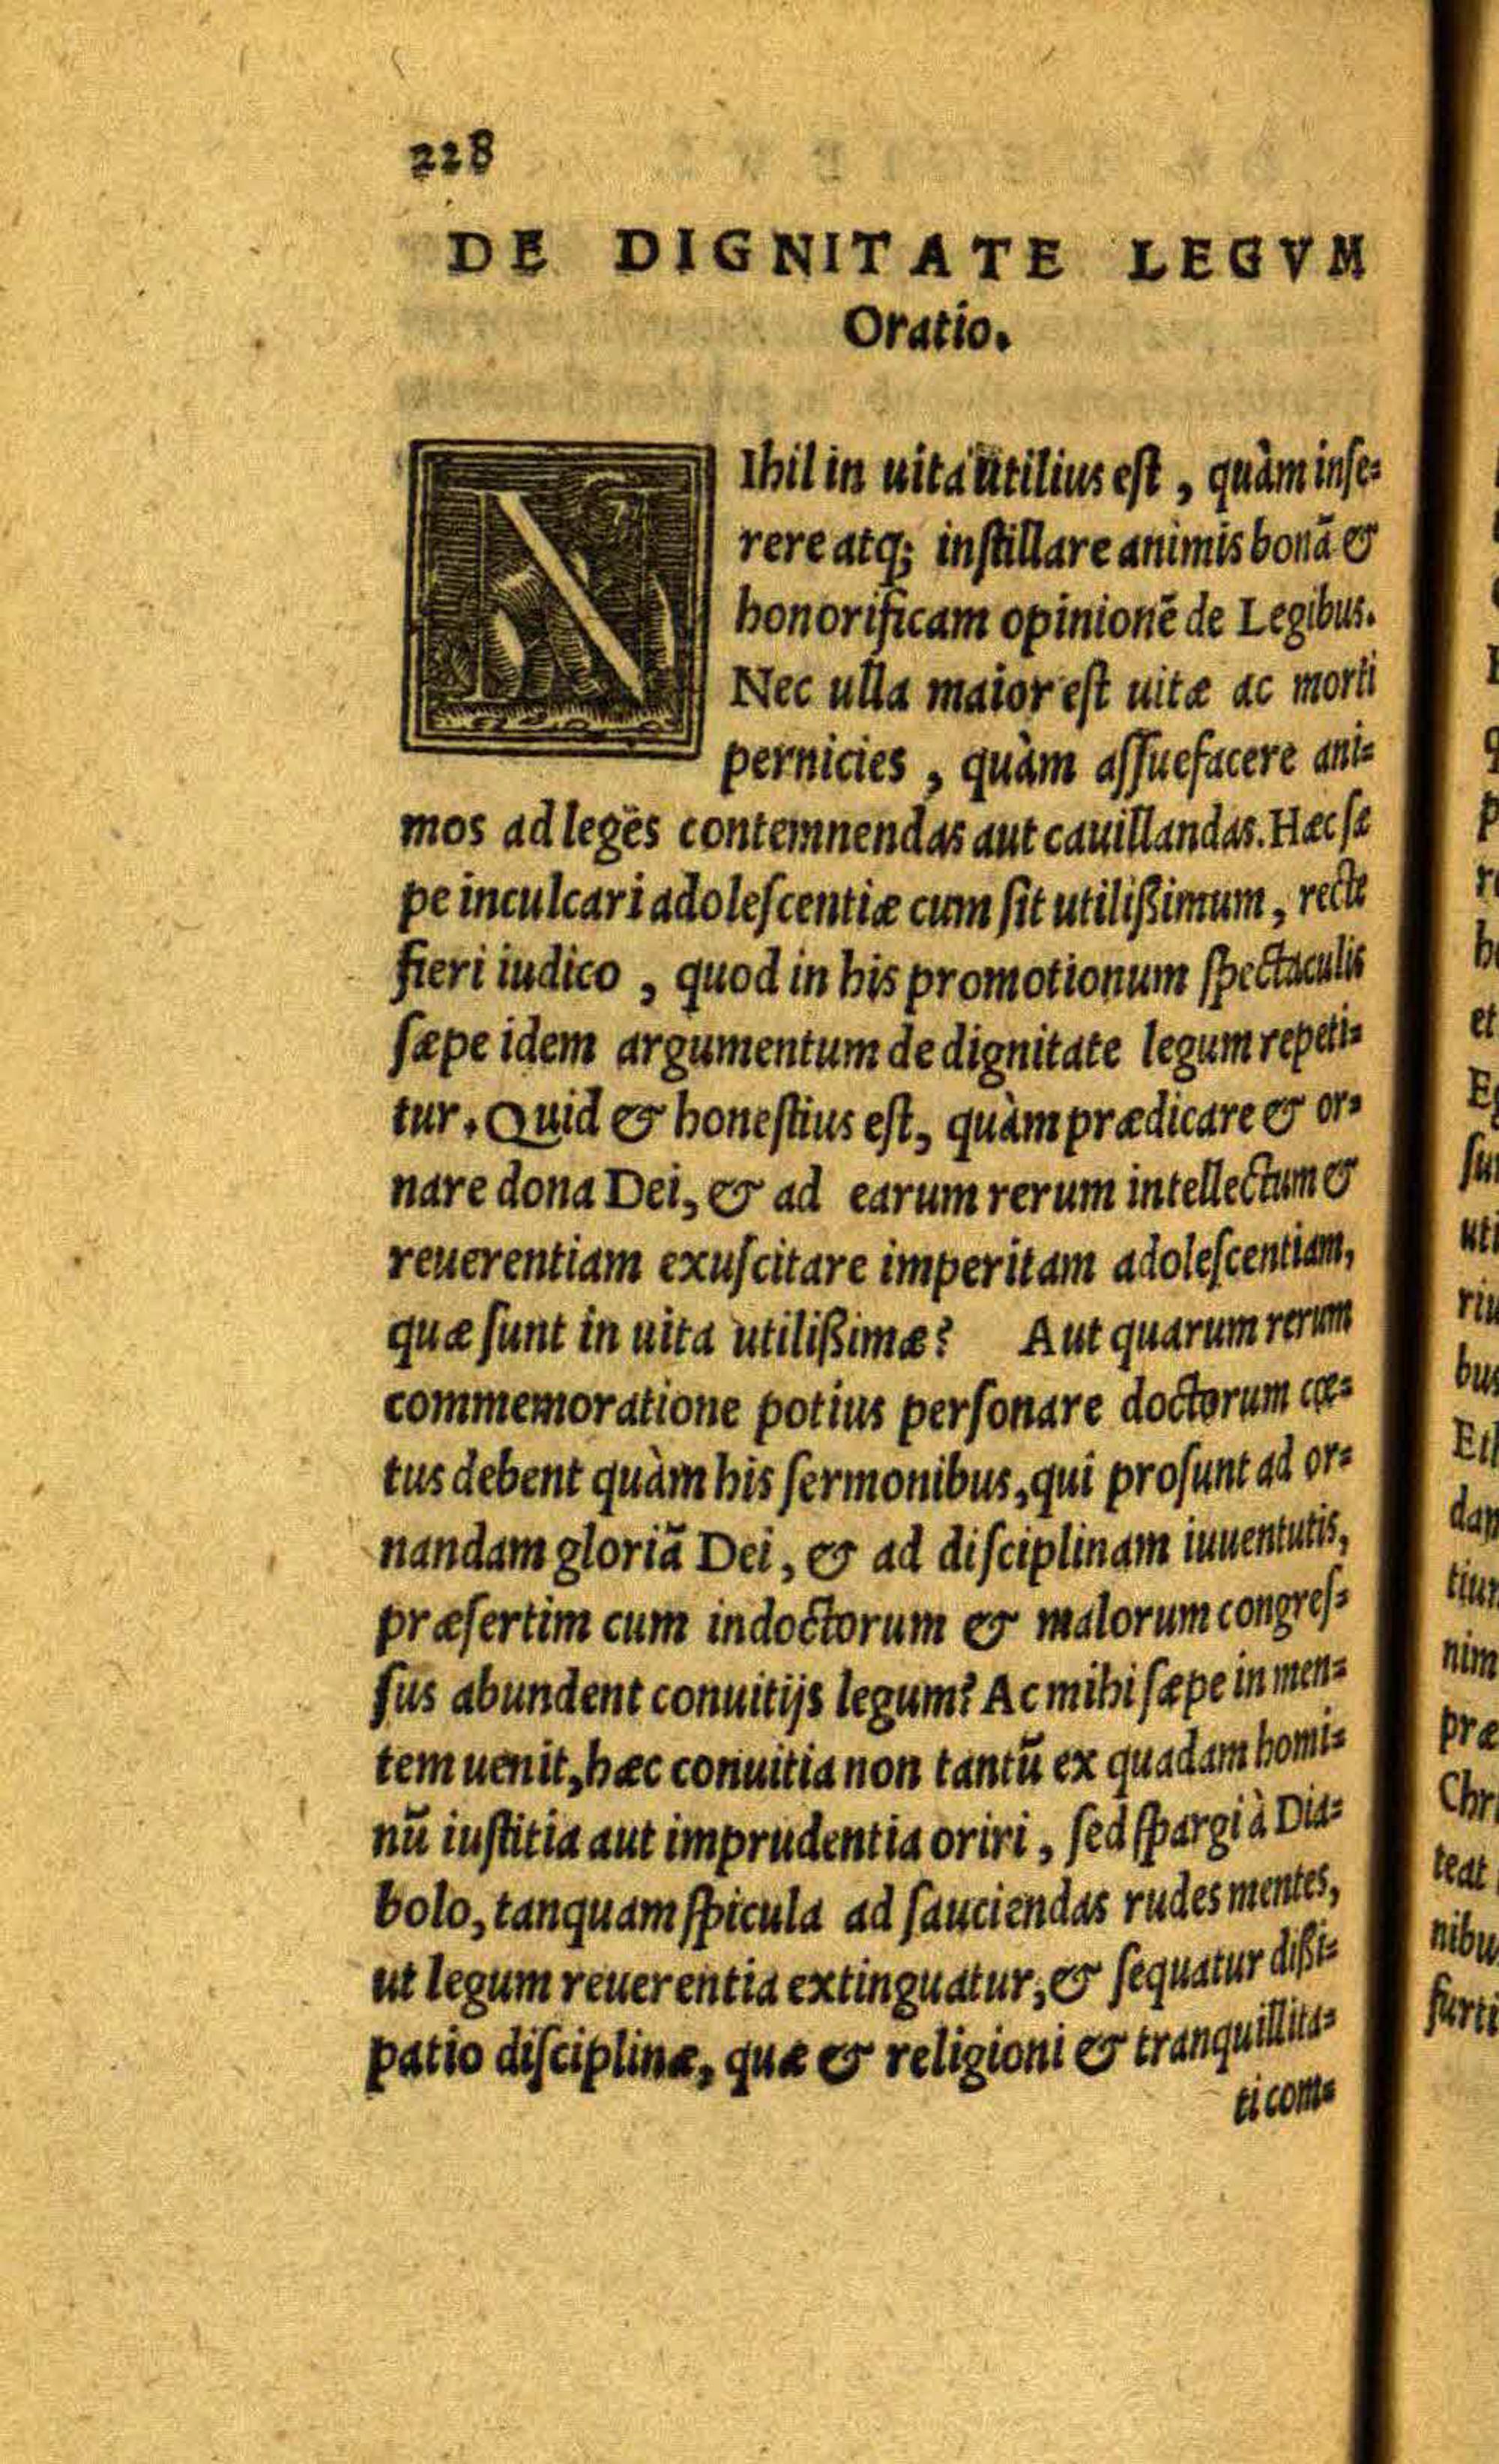 228
DE DIGNITATE LEGVM
Oratio.
NIhil in uita utilius est, quàm inse=
rere atq; instillare animis bonā &
honorificam opinionē de Legibus.
Nec ulla maior est uitæ ac morti
pernicies, quàm assuefacere ani=
mos ad leges contemnendas aut cauillandas. Hæc sæ
pe inculcari adolescentiæ cum sit utilißimum, recte
fieri iudico, quod in his promotionum spectaculis
sæpe idem argumentum de dignitate legum repeti=
tur. Quid & honestius est, quàm prædicare & or=
nare dona Dei, & ad earum rerum intellectum &
reuerentiam exuscitare imperitam adolescentiam,
quæ sunt in uita utilißimæ? Aut quarum rerum
commemoratione potius personare doctorum cœ=
tus debent quàm his sermonibus, qui prosunt ad or=
nandam gloriā Dei, & ad disciplinam iuuentutis,
præsertim cum indoctorum & malorum congres=
sus abundent conuitijs legum? Ac mihi sæpe in men=
tem uenit, hæc conuitia non tantū ex quadam homi=
nū iustitia aut imprudentia oriri, sed spargi à Dia=
bolo, tanquam spicula ad sauciendas rudes mentes,
ut legum reuerentia extinguatur, & sequatur dißi=
patio disciplinæ, quæ & religioni & tranquillita=
ti com=